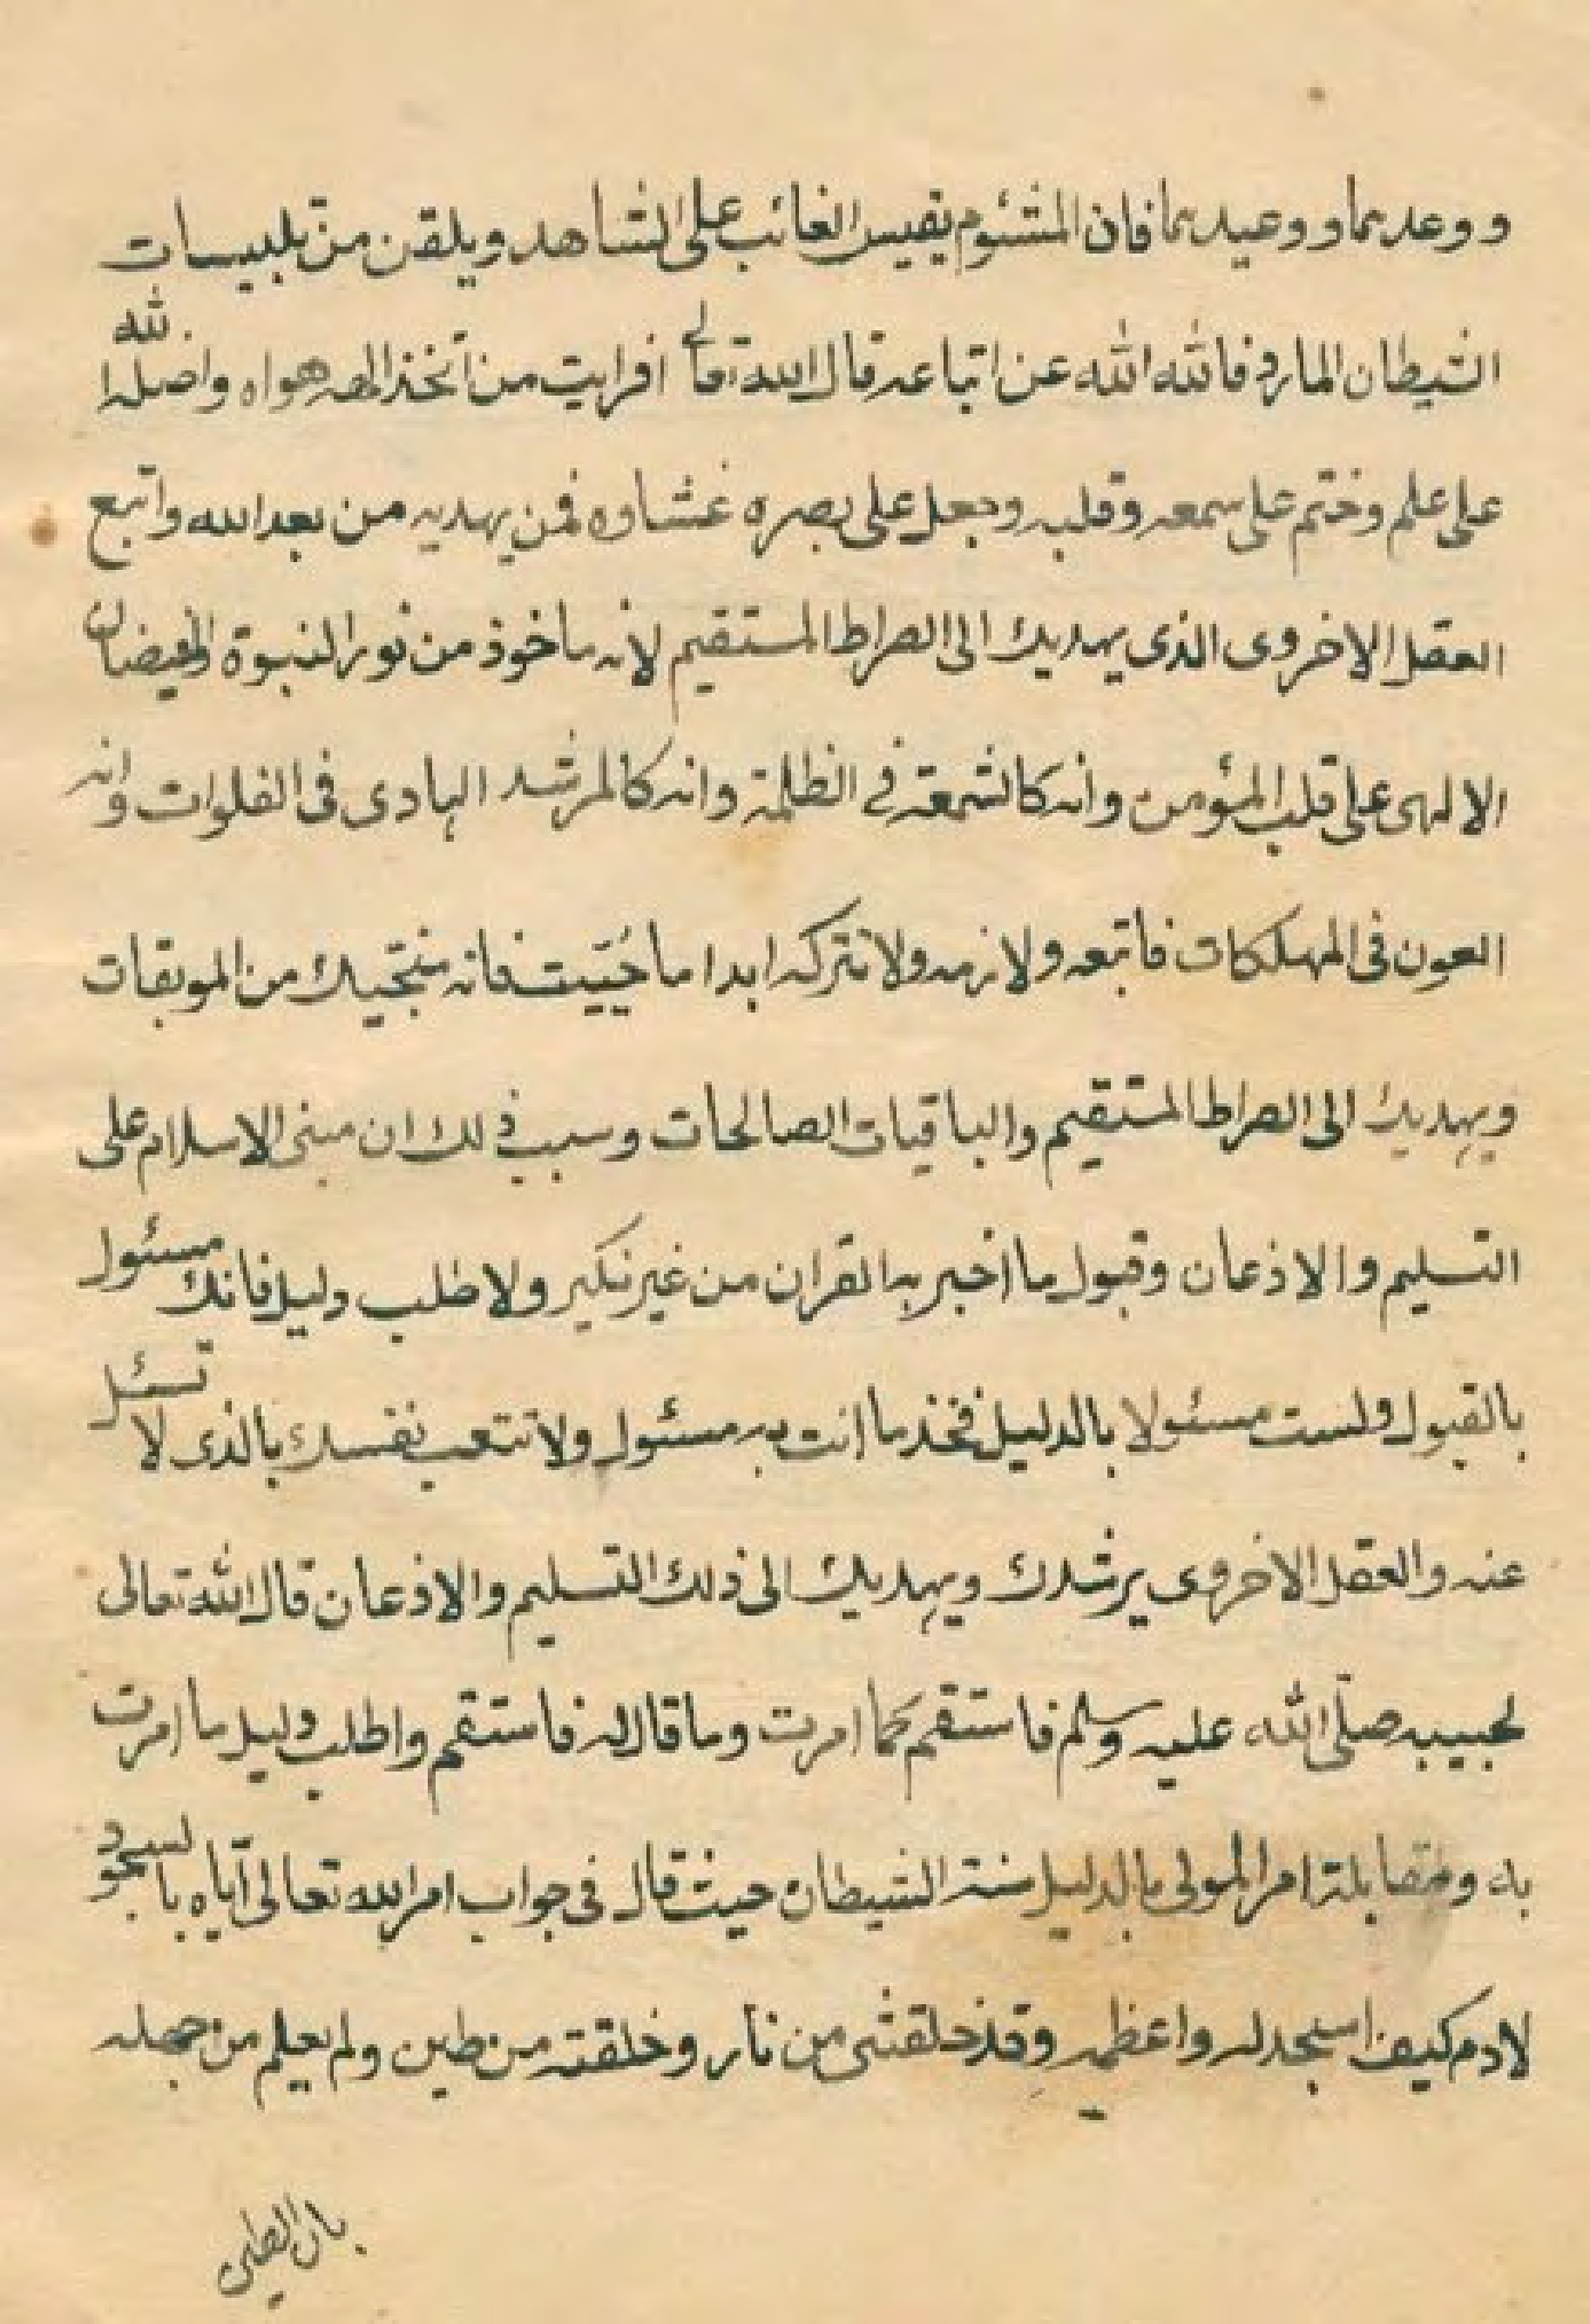 و وعدهما و وعيدهما فان المشئوم يقيس الغائب على الشاهد ويلقن من تلبيسات
الشيطان المارد فالله الله عن اتباعه قال الله تعالى افرايت من اتخذ الهه هواه واضله الله
على علم وختم على سمعه وقلبه وجعل على بصره غشاوه فمن يهديه من بعد الله واتبع
العقل الاخروى الذى يهديك الى الصراط المستقيم لانه ماخوذ من نور النبوة والفيضان
الالهى على قلب المؤمن وانه كالشمعة فى الظلمة وانه كالمرشد الهادى فى الفلوات وانه
العون فى المهلكات فاتبعه ولازمه ولا تتركه ابدا ما حُيّيت فانه منجيك من الموبقات
ويهديك الى الصراط المستقيم والباقيات الصالحات وسبب ذلك ان مبنى الاسلام على
التسليم والاذعان وقبول ما اخبر به القران من غير نكير ولا طلب دليل فانك مسئول
بالقبول ولست مسئولا بالدليل فخذ ما انت به مسئول ولا تتعب نفسك بالذى لا تسئل
عنه والعقل الاخروى يرشدك ويهديك الى ذلك التسليم والاذعان قال الله تعالى
لحبيبه صلّى الله عليه وسلم فاستقم كما امرت وما قال له فاستقم واطلب دليل ما امرت
به ومقابلة امر المولى بالدليل سنة الشيطان حيث قال فى جواب امر الله تعالى اياه بالسجود
لادم كيف اسجد له واعظمه وقد خلقتنى من نار وخلقته من طين ولم يعلم من جهله
بان الطين